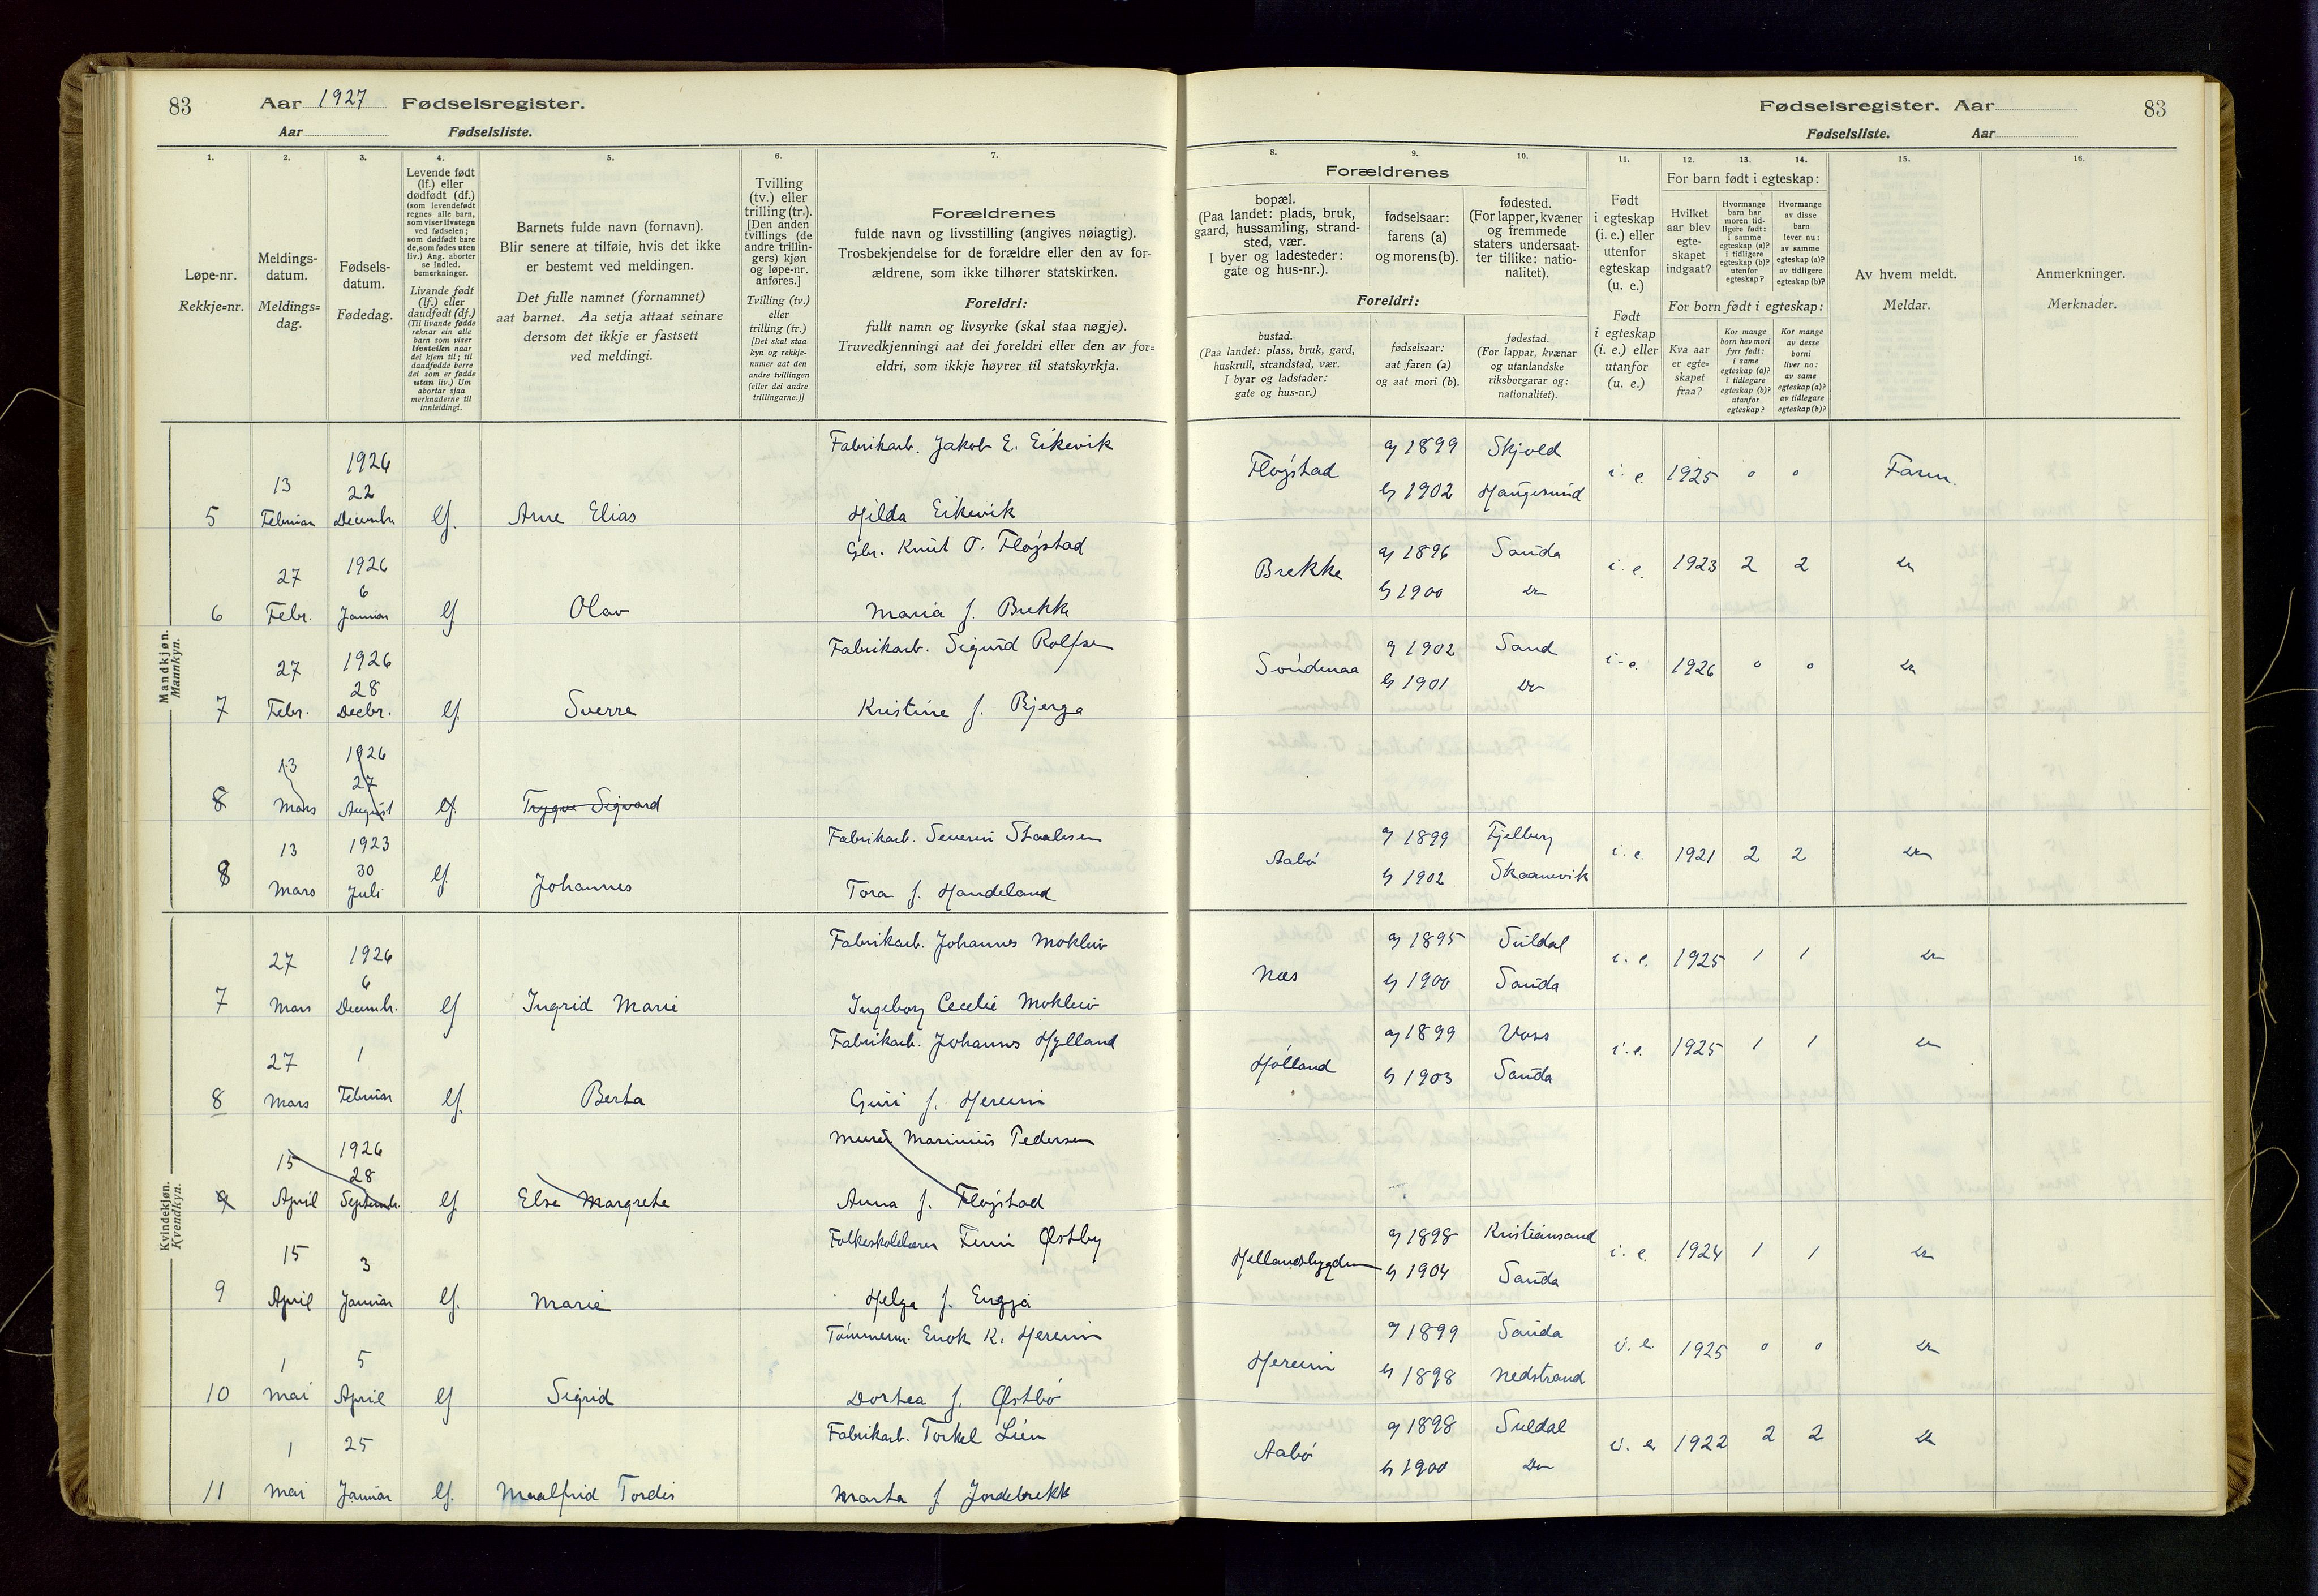 83 Aar 1927 Fødselsregister.
Aar Fødselsliste.
Fødselsregister. Aar 83
Fødselsliste. Aar
1. 2. 3. 4. 5. 6. 7. 8. 9. 10. 11. 12. 13. 14. 15. 16.
Løpe-nr.
Rekkje=nr.
Meldings-
datum.
Meldings=
dag.
Fødsels-
datum.
Fødedag.
Levende født
(lf.) eller
dødfødt (df.)
(som levendefødt
regnes alle barn,
som viser livstegn
ved fødselen;
som dødfødt bare
de, som fødes uten
liv.) Ang. aborter
se indled.
bemerkninger.
Livande født
(lf.) eller
daudfødt (df.)
(Til livande fødde
reknar ein alle
barn som viser
livsteikn naar
dei kjem til; til
daudfødde berre
dei som er fødde
utan liv.) Um
abortar sjaa
merknaderne til
innleidingi.
Barnets fulde navn (fornavn).
Blir senere at tilføie, hvis det ikke
er bestemt ved meldingen.
Det fulle namnet (fornamnet)
aat barnet. Aa setja attaat seinare
dersom det ikkje er fastsett
ved meldingi.
Tvilling
(tv.) eller
trilling (tr.).
[Den anden
tvillings (de
andre trillin-
gers) kjøn
og løpe-nr.
anføres.]
Tvilling (tv.)
eller
trilling (tr.)
[Det skal staa
kyn og rekkje-
numer aat den
andre tvillingen
(eller dei andre
trillingarne.)]
Forældrenes
fulde navn og livsstilling (angives nøiagtig).
Trosbekjendelse for de forældre eller den av for-
ældrene, som ikke tilhører statskirken.
Foreldri:
fullt namn og livsyrke (skal staa nøgje).
Truvedkjenningi aat dei foreldri eller den av for=
eldri, som ikkje høyrer til statskyrkja.
Forældrenes
bopæl.
(Paa landet: plads, bruk,
gaard, hussamling, strand-
sted, vær.
I byer og ladesteder:
gate og hus-nr.).
fødselsaar:
farens (a)
og morens (b).
fødested.
(For lapper, kvæner
og fremmede
staters undersaat-
ter tillike: natio-
nalitet).
Foreldri:
bustad.
(Paa landet: plass, bruk, gard,
huskrull, strandstad, vær.
I byar og ladstader:
gate og hus=nr.)
fødselsaar:
aat faren (a)
og aat mori (b).
fødestad.
(For lappar, kvænar
og utanlandske
riksborgarar og:
nationalitet).
Født
i egteskap
(i. e.) eller
utenfor
egteskap
(u. e.)
Født
i egteskap
(i. e.) eller
utanfor
(u. e.)
For barn født i egteskap:
Hvilket
aar blev
egte-
skapet
indgaat?
Hvormange
barn har
moren tid-
ligere født:
i samme
egteskap (a)?
i tidligere
egteskap (b)?
utenfor
egteskap?
Hvormange
av disse
barn
lever nu:
av samme
egteskap (a)?
av tidligere
egteskap (b)?
For born født i egteskap:
Kva aar
er egte=
skapet
fraa?
Kor mange
born hev mori
fyrr født:
i same
egteskap (a)?
i tidlegare
egteskap (b)?
utanfor
egteskap?
Kor mange
av desse
borni
liver no:
av same
egteskap (a)?
av tidlegare
egteskap (b)?
Av hvem meldt.
Meldar.
Anmerkninger.
Merknader.
Mandkjøn.
Mannkyn.
5 13 Februar 1926 22 Decembr. lf. Arne Elias Fabrikarb. Jakob E. Eikevik Hilda Eikevik Fløgstad a) 1899 Skjold b) 1902 Haugesund i. e. 1925 0 0 Faren.
6 27 Febr. 1926 6 Januar lf Olav Gbr. Knut O. Fløgstad Maria f. Brekke Brekke a) 1896 Sauda b) 1900 Do i. e. 1923 2 2 Do
7 27 Febr. 1926 28 Decbr. lf. Sverre Fabrikarb. Sigurd Rolfsen Kristine f. Bjerga Søndenaa a) 1902 Sand b) 1901 Do i. e. 1926 0 0 Do
8 13 Mars 1926 27 August lf. Trygve Sigvard
8 13 Mars 1923 30 Juli lf. Johannes Fabrikarb. Severin Staalesen Tora f. Handeland Aabø a) 1899 Fjelberg b) 1902 Skaanevik i. e. 1921 2 2 Do
Kvindekjøn.
Kvendkyn.
7 27 Mars 1926 6 Decembr. lf Ingrid Marie Fabrikarb. Johannes Mokleiv Ingeborg Cecelie Mokleiv Næs a) 1895 Suldal b) 1900 Sauda i. e. 1925 1 1 Do
8 27 Mars 1 Februar lf. Berta Fabrikarb. Johannes Hylland Guri f. Hereim Hølland a) 1899 Voss b) 1903 Sauda i. e. 1925 1 1 Do
9 15 April 1926 28 Septembr. lf Else Margrete Murer Marinius Pedersen Anna f. Fløgstad
9 15 April 3 Januar lf. Marie Folkeskolelærer Finn Østby Helga f. Enggja Hellandsbygden a) 1898 Kristiansand b) 1904 Sauda i. e. 1924 1 1 Do
10 1 Mai 5 April lf Sigrid Tømmerm. Enok K. Hereim Dortea f. Østbø Hereim a) 1899 Sauda b) 1898 Nedstrand i. e. 1925 0 0 Do
11 1 Mai 25 Januar lf. Maalfrid Tordis Fabrikarb. Torkel Lien Marta f. Jordebrekk Aabø a) 1898 Suldal b) 1900 Do i. e. 1922 2 2 Do